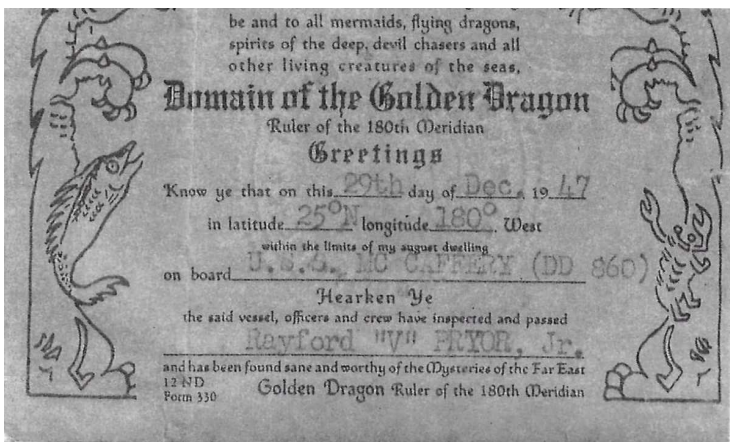 be and to all mermaids, flying dragons,
spirits of the deep, devil chasers and all
other living creatures of the seas,
Domain of the Golden Dragon
Ruler of the 180th Meridian
Greetings
Know ye that on this 29th day of Dec. 1947
in latitude 25°N longitude 180° West
within the limits of my august dwelling
on board U.S.S. MC CAFFERY (DD 860)
Hearken Ye
the said vessel, officers and crew have inspected and passed
Rayford "V" PRYOR, Jr.
and has been found sane and worthy of the Mysteries of the Far East
12 ND
Form 330
Golden Dragon Ruler of the 180th Meridian